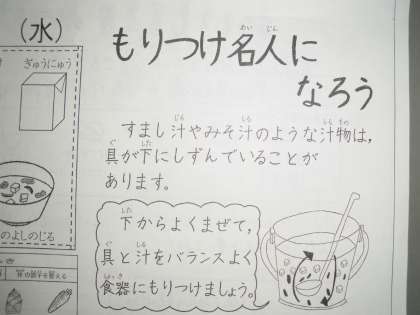 (水)
ぎゅうにゅう
のよしのじる
もりつけ名人に
なろう
すまし汁やみそ汁のような汁物は,
具が下にしずんでいることが
あります。
下からよくまぜて,
具と汁をバランスよく
食器にもりつけましょう。